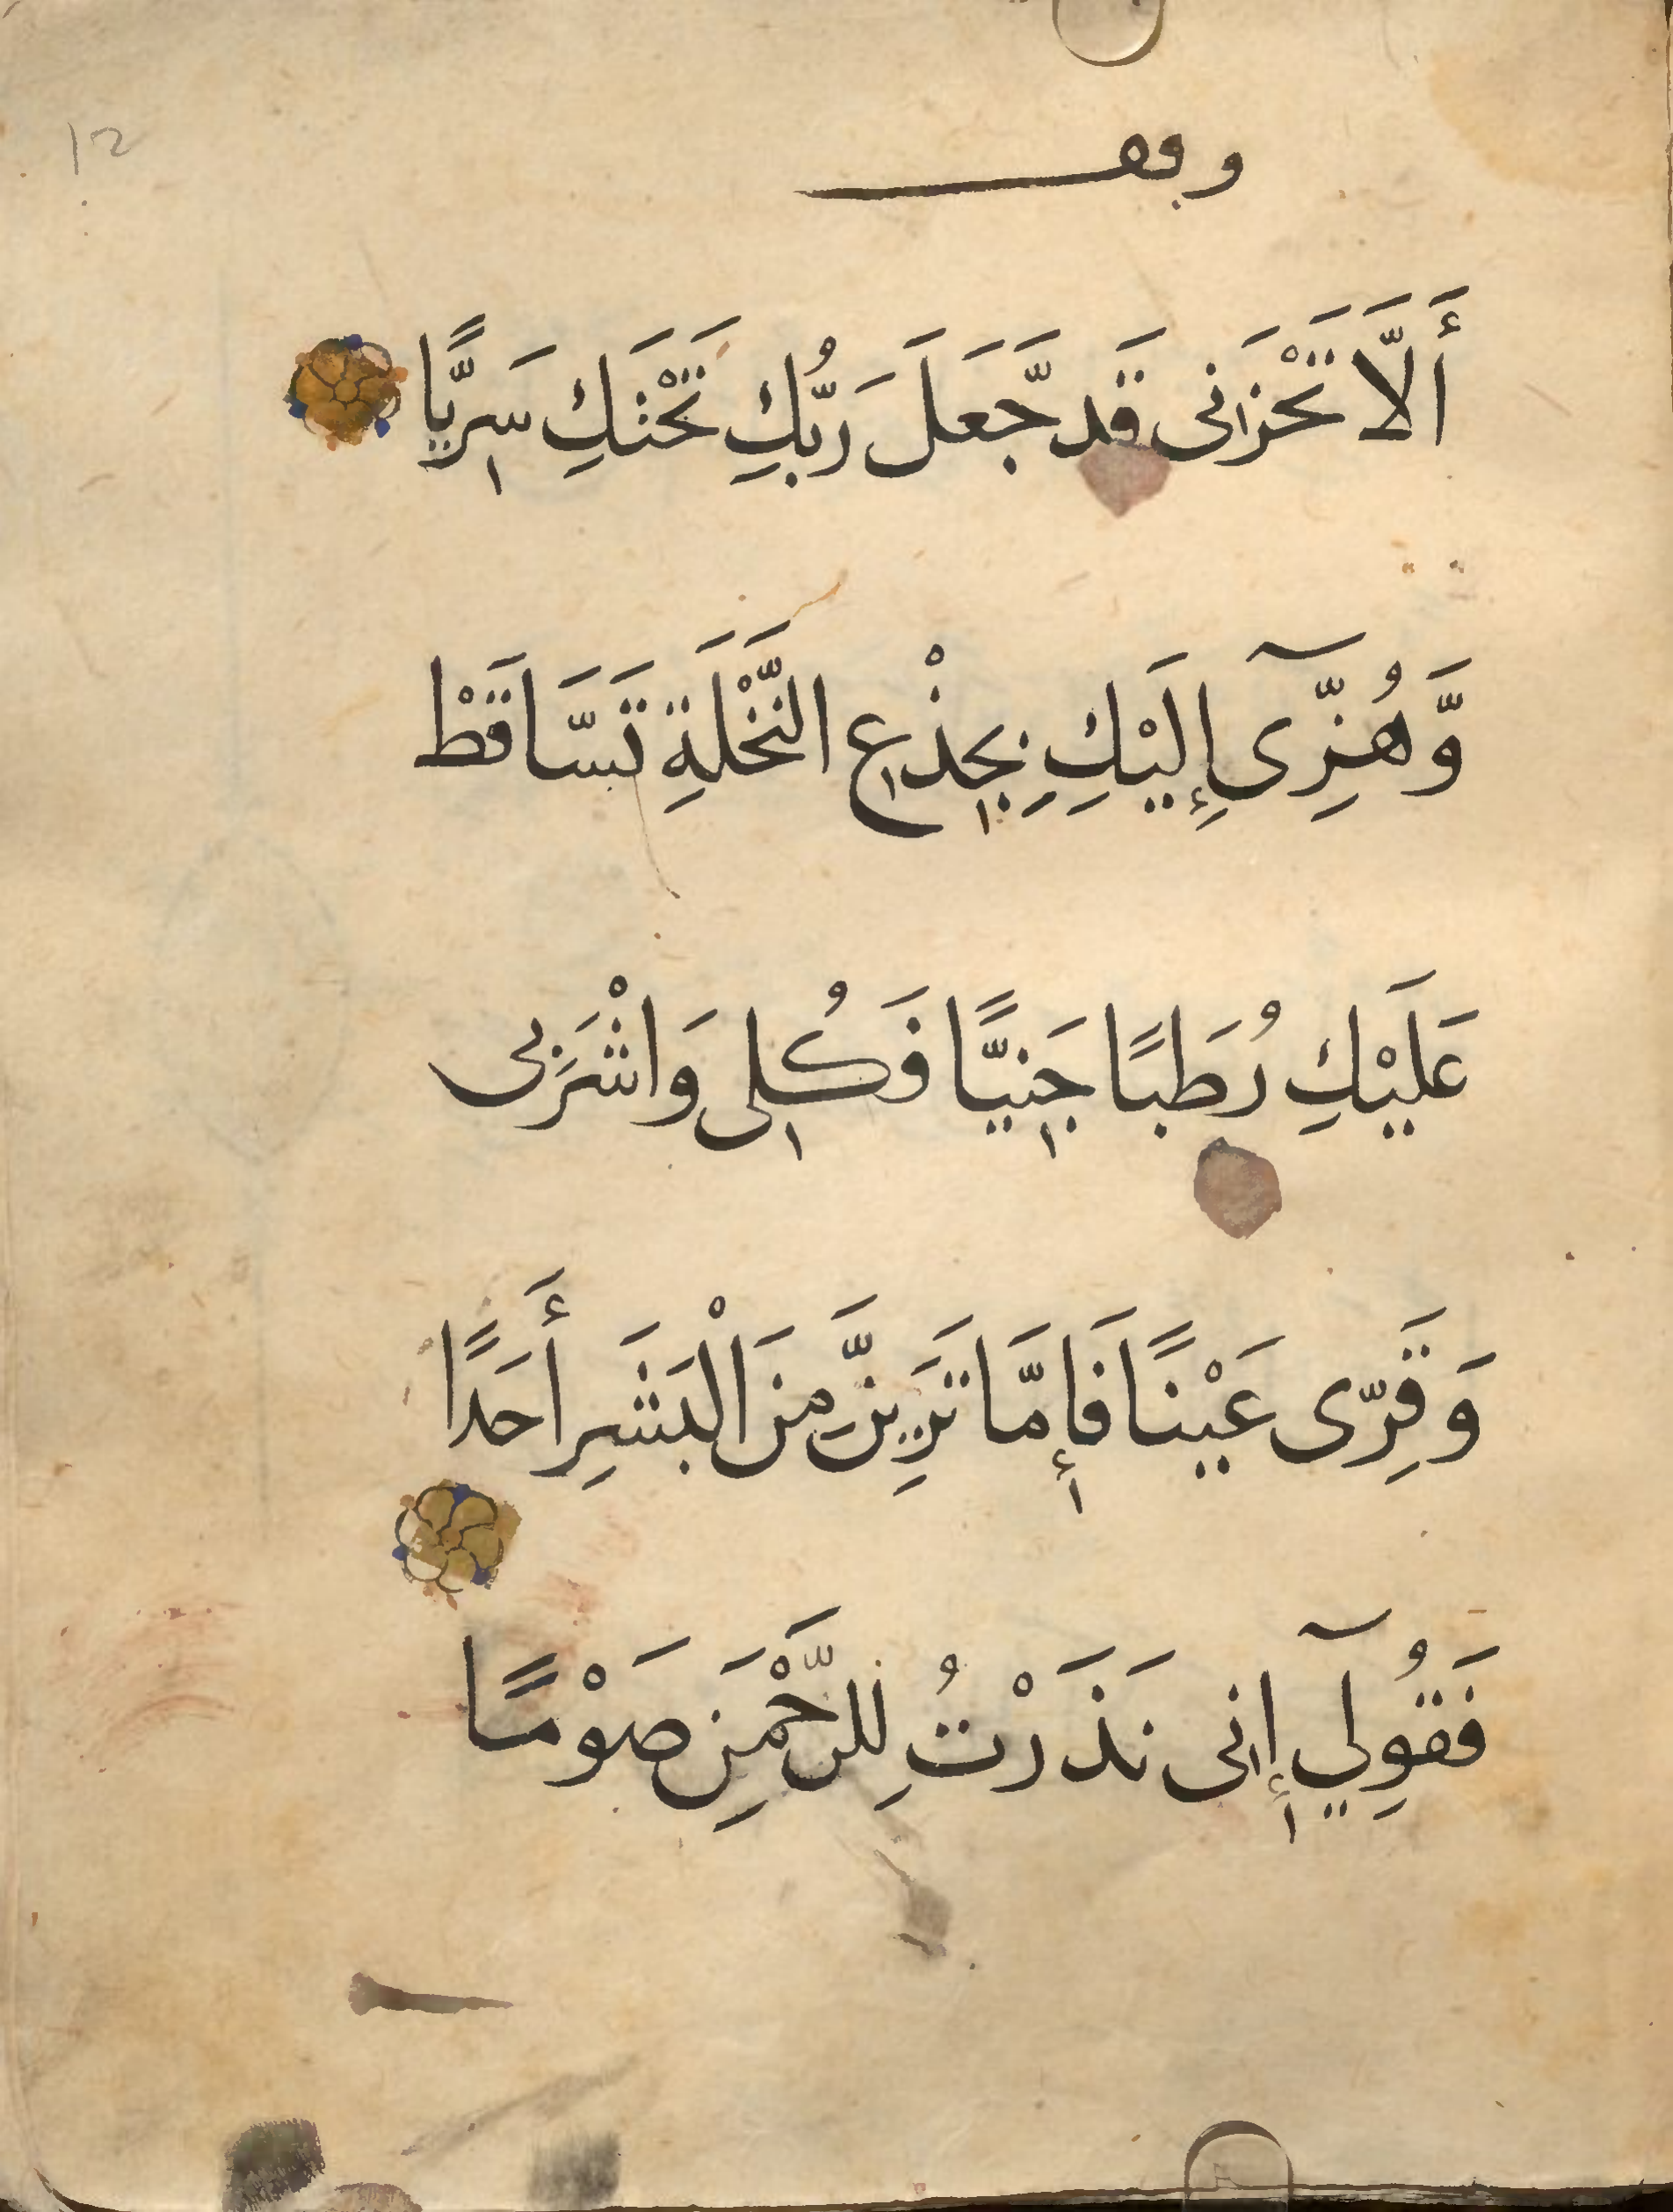 12
وقف
أَلَّا تَحْزَنِى قَد جَّعَلَ رَبُّكِ تَحْتَكِ سَرِيًّا
وَّهُزِّىٓ إِلَيْكِ بِجِذْعِ النَّخْلَةِ تَسَّاقَطْ
عَلَيْكِ رُطَبًا جَنِيًّا فَكُلِى وَاشْرَبِى
وَقَرِّى عَيْنًا فَإِمَّا تَرَيِنَّ مِنَ الْبَشَرِ أَحَدًا
فَقُولِيٓ إِنِى نَذَرْتُ لِلرَّحْمَنِ صَوْمًا